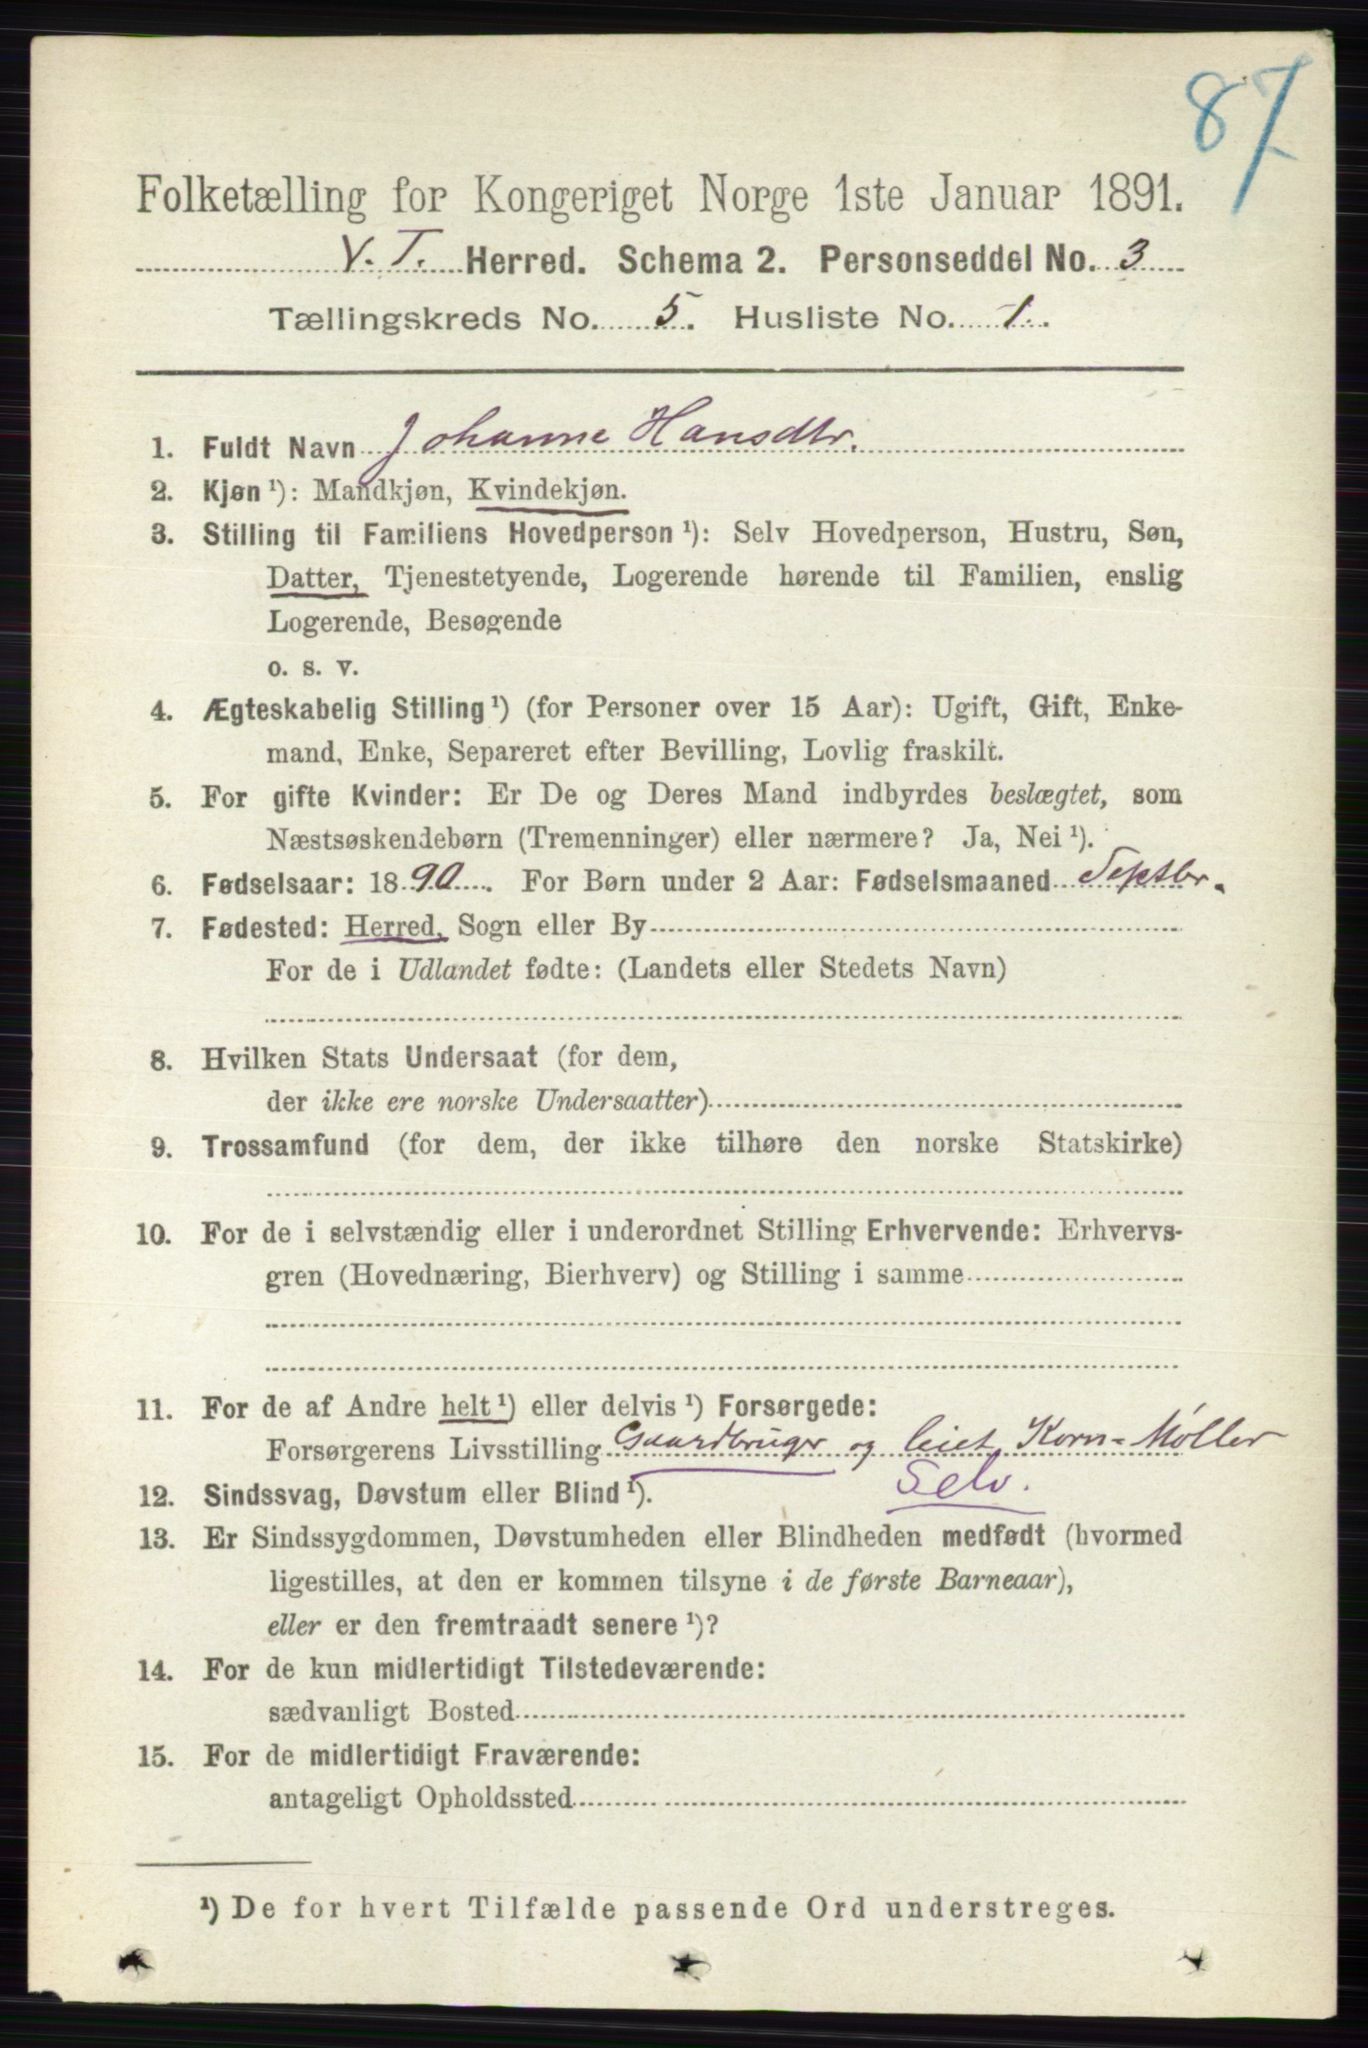 87
Folketælling for Kongeriget Norge 1ste Januar 1891.
V. T. Herred. Schema 2. Personseddel No. 3
Tællingskreds No. 5. Husliste No. 1.
1. Fuldt Navn Johanne Hansdtr.
2. Kjøn ¹): Mandkjøn, Kvindekjøn.
3. Stilling til Familiens Hovedperson ¹): Selv Hovedperson, Hustru, Søn,
Datter, Tjenestetyende, Logerende hørende til Familien, enslig
Logerende, Besøgende
o. s. v.
4. Ægteskabelig Stilling ¹) (for Personer over 15 Aar): Ugift, Gift, Enke-
mand, Enke, Separeret efter Bevilling, Lovlig fraskilt.
5. For gifte Kvinder: Er De og Deres Mand indbyrdes beslægtet, som
Næstsøskendebørn (Tremenninger) eller nærmere? Ja, Nei ¹).
6. Fødselsaar: 1890. For Børn under 2 Aar: Fødselsmaaned Septbr.
7. Fødested: Herred, Sogn eller By
For de i Udlandet fødte: (Landets eller Stedets Navn)
8. Hvilken Stats Undersaat (for dem,
der ikke ere norske Undersaatter)
9. Trossamfund (for dem, der ikke tilhøre den norske Statskirke)
10. For de i selvstændig eller i underordnet Stilling Erhvervende: Erhvervs-
gren (Hovednæring, Bierhverv) og Stilling i samme
11. For de af Andre helt ¹) eller delvis ¹) Forsørgede:
Forsørgerens Livsstilling Gaardbruger og leiet Korn-Møller
Selv.
12. Sindssvag, Døvstum eller Blind ¹).
13. Er Sindssygdommen, Døvstumheden eller Blindheden medfødt (hvormed
ligestilles, at den er kommen tilsyne i de første Barneaar),
eller er den fremtraadt senere ¹)?
14. For de kun midlertidigt Tilstedeværende:
sædvanligt Bosted
15. For de midlertidigt Fraværende:
antageligt Opholdssted
¹) De for hvert Tilfælde passende Ord understreges.